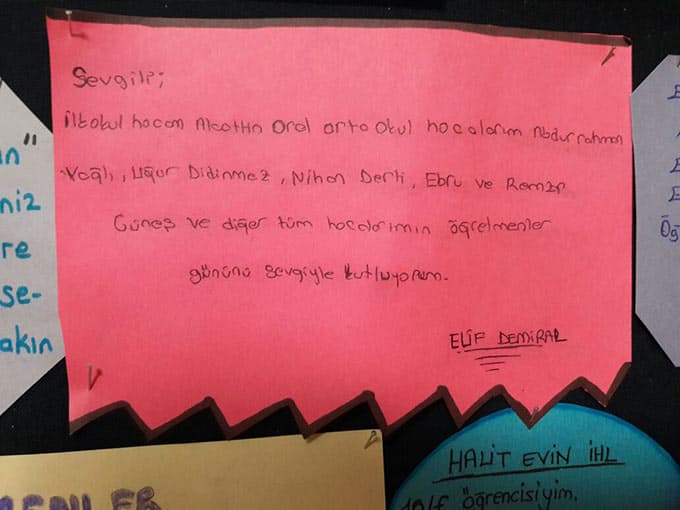 Sevgili;
İlkokul hocam Alaattin Oral orta okul hocalarım Abdurrahman
Uğur Didinmez, Nihan Derli, Ebru ve Remzi
Güneş ve diğer tüm hocalarımın öğretmenler
gününü sevgiyle kutluyorum.
ELİF DEMİRAL
ın"
niz
re
se-
akın
HALİT EVİN İHL
10/F öğrencisiyim.